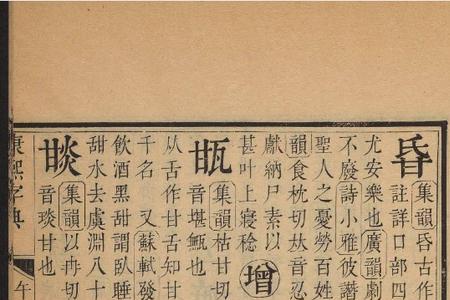 集韻昏古作
註詳口部四
尤安樂也廣韻劇
不廢詩小雅彼譖
聖人之憂勞百姓
韻食枕切𠀤音忍
獻納尸素以
甚叶上寖稔
增
集韻枯甘切
音堪也
从舌作甘舌知甘
千名 又蘇軾發
飲酒黑甜謂臥睡
甜水去虞淵八十
集韻以冉切
音琰甘也
康熙字典 午